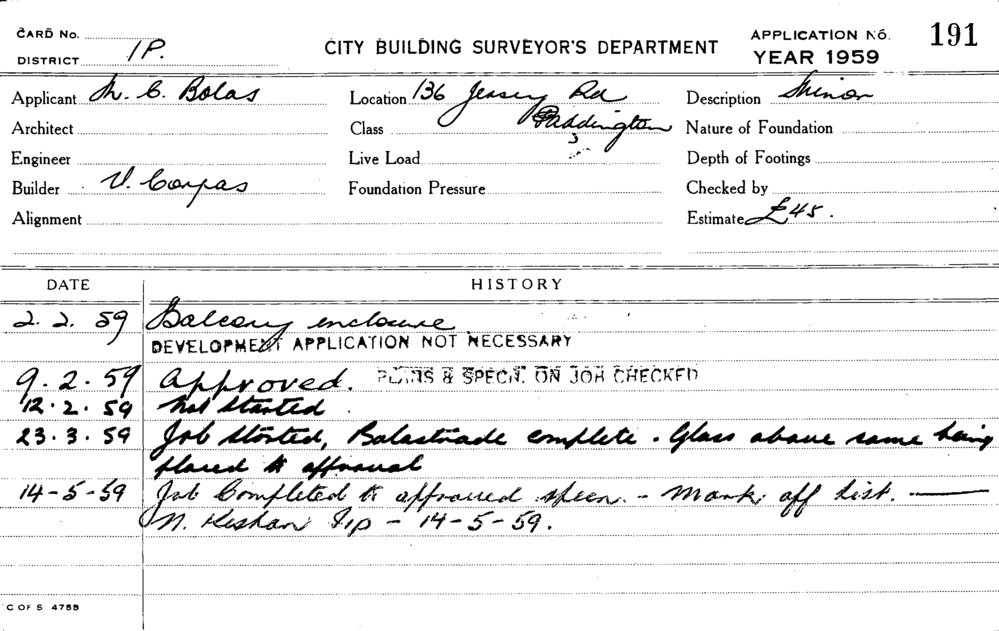 CARD No.
DISTRICT 1P.
CITY BUILDING SURVEYOR'S DEPARTMENT
APPLICATION No. 191
YEAR 1959
Applicant M. C. Bolas
Location 136 Jersey Rd
Description Minor
Architect
Class Paddington
Nature of Foundation
Engineer
Live Load
Depth of Footings
Builder V. Corpas
Foundation Pressure
Checked by
Alignment
Estimate £45.
DATE HISTORY
2.2.59 Balcony enclosure
DEVELOPMENT APPLICATION NOT NECESSARY
9.2.59 Approved. PLANS & SPECN. ON JOB CHECKED
12.2.59 Not started.
23.3.59 Job started, Balastrade complete. Glass above same being
placed to approval
14-5-59 Job Completed to approved specn. - Mark off list.
14-5-59.
C OF S 4755